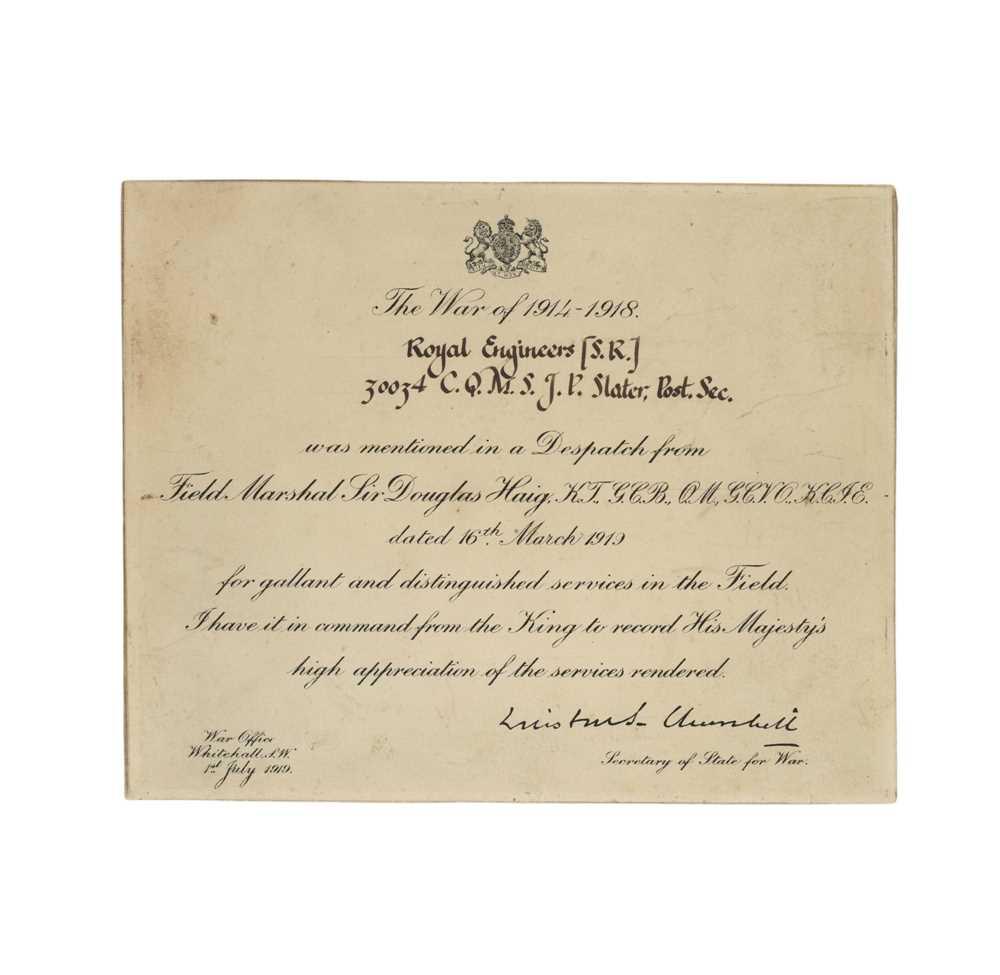 The War of 1914-1918.
Royal Engineers [S.R.]
30034 C.Q.M.S. J. P. Slater, Post. Sec.
was mentioned in a Despatch from
Field Marshal Sir Douglas Haig, K.T., G.C.B., O.M., G.C.V.O., K.C.I.E.
dated 16th March 1919
for gallant and distinguished services in the Field.
I have it in command from the King to record His Majesty's
high appreciation of the services rendered.
Winston S. Churchill
War Office
Whitehall, S.W.
1st July 1919.
Secretary of State for War.